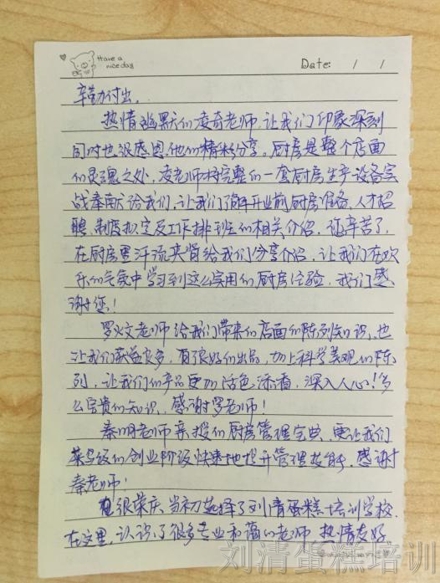 Have a nice day
Date: / /
辛勤付出。
热情幽默的凌奇老师，让我们印象深刻
同时也很感恩他们精彩分享。厨房是整个店面
的灵魂之处，凌老师将完整的一套厨房生产设备实
战奉献给我们，让我们了解开业前厨房准备、人才招
聘、制度拟定及工作排班的相关介绍，您辛苦了，
在厨房里汗流夹背给我们分享介绍，让我们在欢
乐的气氛中学习到这么实用的厨房经验，我们感
谢您！
罗火文老师给我们带来的店面的陈列知识，也
让我们获益良多，有很好的出品，加上科学美观的陈
列，让我们的产品更加活色添香，深入人心！多
么宝贵的知识，感谢罗老师！
秦明老师亲授的厨房管理宝典，更让我们
菜鸟级的创业阶段快速地提升管理技能，感谢
秦老师！
很荣庆，当初选择了刘清蛋糕培训学校，
在这里，认识了很多专业和蔼的老师，热情友好、
刘清蛋糕培训